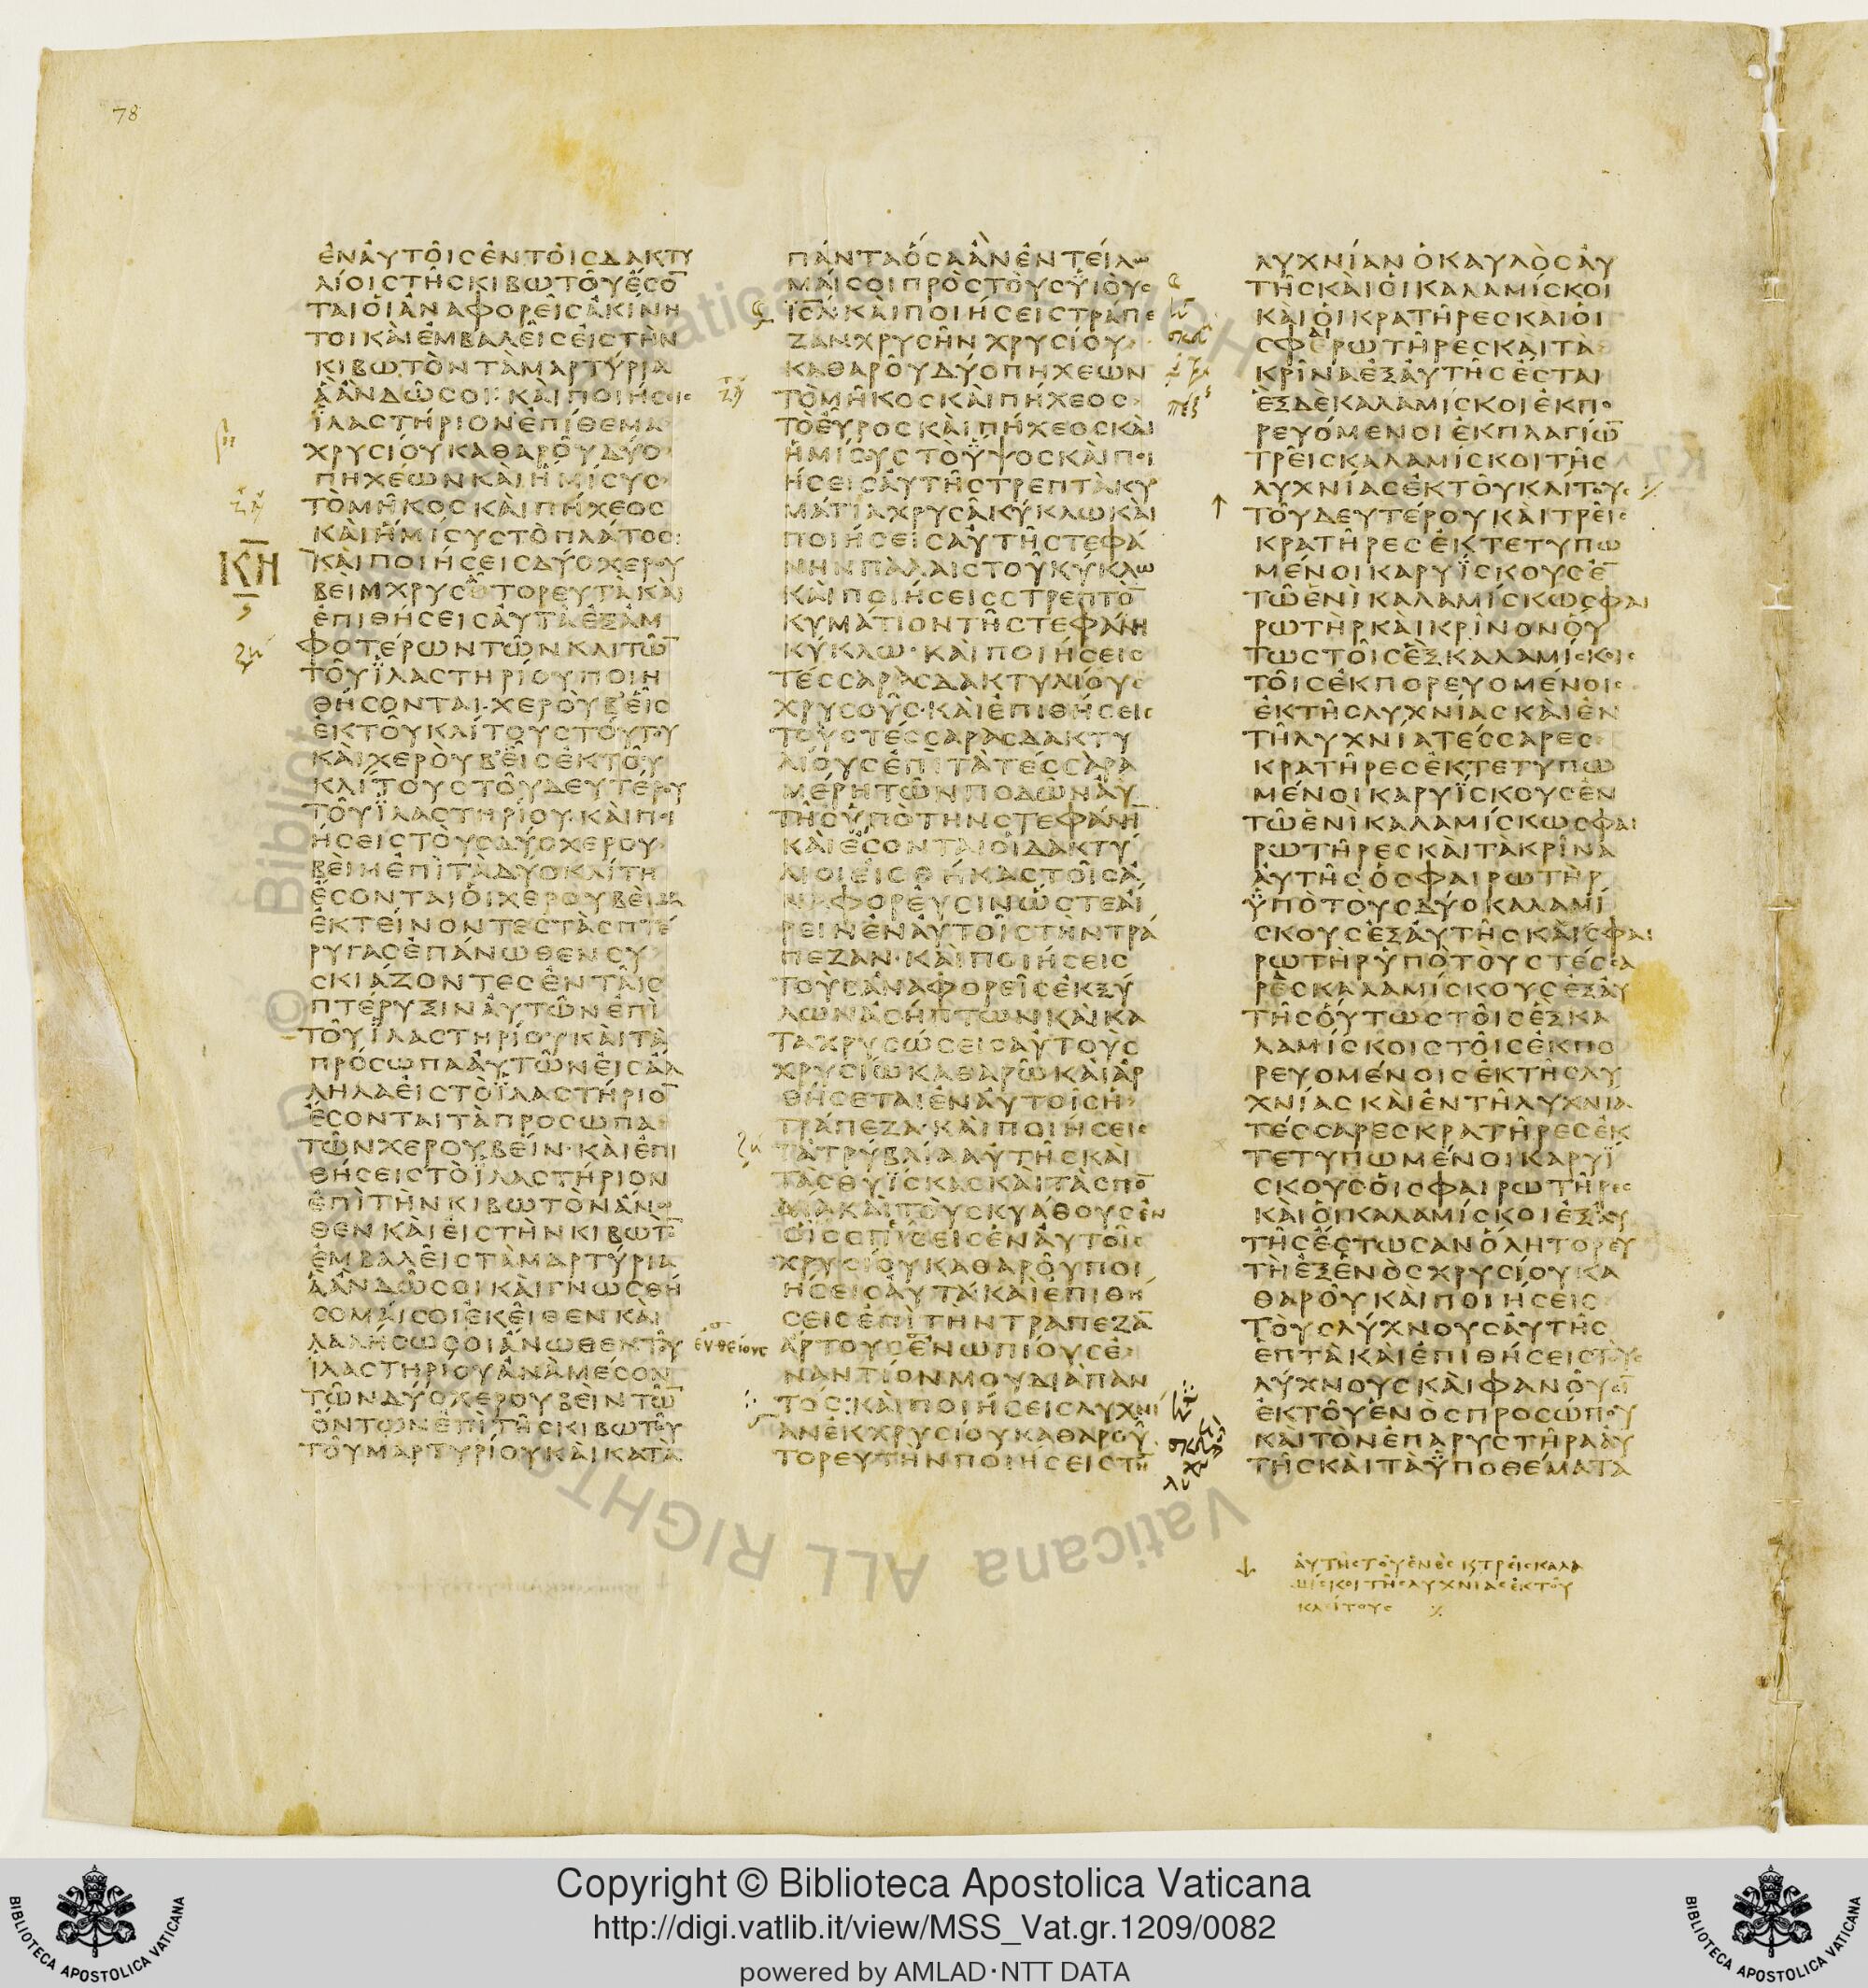 78
ἐν αὐτοῖς ἐν τοῖς δακτυ
λίοις τῆς κιβωτοῦ ἔσο̅
ται οἱ ἀναφορεῖς ἀκίνη
τοι καὶ ἐμβαλεῖς εἰς τὴν
κιβωτὸν τὰ μαρτύρια
ἃ ἂν δῶ σοι: καὶ ποιήσεις
ἱλαστήριον ἐπίθεμα
χρυσίου καθαροῦ δύο
πήχεων καὶ ἡμίσυς
τὸ μῆκος καὶ πήχεος
καὶ ἡμίσυς τὸ πλάτος:
ΚΗ
καὶ ποιήσεις δύο χερου
βεὶμ χρυσᾶ τορευτὰ καὶ
ἐπιθήσεις αὐτὰ ἐξ ἀμ
φοτέρων τῶν κλιτῶ̅
τοῦ ἱλαστηρίου ποιη
θήσονται· χεροὺβ εἷς
ἐκ τοῦ κλίτους τούτου
καὶ χεροὺβ εἷς ἐκ τοῦ
κλίτους τοῦ δευτέρου
τοῦ ἱλαστηρίου· καὶ ποι
ήσεις τοὺς δύο χερου
βεὶμ ἐπὶ τὰ δύο κλίτη
ἔσονται οἱ χερουβεὶμ
ἐκτείνοντες τὰς πτέ
ρυγας ἐπάνωθεν συ
σκιάζοντες ἐν ταῖς
πτέρυξιν αὐτῶν ἐπὶ
τοῦ ἱλαστηρίου καὶ τὰ
πρόσωπα αὐτῶν εἰς ἄλ
ληλα εἰς τὸ ἱλαστήριο̅
ἔσονται τὰ πρόσωπα
τῶν χερουβείν· καὶ ἐπι
θήσεις τὸ ἱλαστήριον
ἐπὶ τὴν κιβωτὸν ἄνω
θεν καὶ εἰς τὴν κιβωτὸ̅
ἐμβαλεῖς τὰ μαρτύρια
ἃ ἂν δῶ σοι καὶ γνωσθή
σομαί σοι ἐκεῖθεν καὶ
λαλήσω σοι ἄνωθεν τοῦ
ἱλαστηρίου ἀνὰ μέσον
τῶν δύο χερουβεὶν τῶ̅
ὄντων ἐπὶ τῆς κιβωτοῦ
τοῦ μαρτυρίου καὶ κατὰ
πάντα ὅσα ἂν ἐντείλω
μαί σοι πρὸς τοὺς υἱοὺς
ι̅σ̅λ̅· καὶ ποιήσεις τράπε
ζαν χρυσῆν χρυσίου
καθαροῦ δύο πήχεων
τὸ μῆκος καὶ πήχεος
τὸ εὖρος καὶ πήχεος καὶ
ἡμίσους τὸ ὕψος καὶ ποι
ήσεις αὐτῇ στρεπτὰ κυ
μάτια χρυσᾶ κύκλω καὶ
ποιήσεις αὐτῇ στεφά
νην παλαιστοῦ κύκλω
καὶ ποιήσεις στρεπτὸ̅
κυμάτιον τῇ στεφάνη
κύκλω· καὶ ποιήσεις
τέσσαρας δακτυλίους
χρυσοῦς· καὶ ἐπιθήσεις
τοὺς τέσσαρας δακτυ
λίους ἐπὶ τὰ τέσσαρα
μέρη τῶν ποδῶν αὐ
τῆς ὑπὸ τὴν στεφάνη̅
καὶ ἔσονται οἱ δακτύ
λιοι εἰς θήκας τοῖς ἀ
ναφορεῦσιν ὥστε αἴ
ρειν ἐν αὐτοῖς τὴν τρά
πεζαν· καὶ ποιήσεις
τοὺς ἀναφορεῖς ἐκ ξύ
λων ἀσήπτων καὶ κα
ταχρυσώσεις αὐτοὺς
χρυσίω καθαρῶ καὶ ἀρ
θήσεται ἐν αὐτοῖς ἡ
τράπεζα· καὶ ποιήσεις
τὰ τρύβλια αὐτῆς καὶ
τὰς θυΐσκας καὶ τὰ σπο̅
δῖα καὶ τοὺς κυάθους ἐν
οἷς σπίσεις ἐν αὐτοῖς
χρυσίου καθαροῦ ποι
ήσεις αὐτά· καὶ ἐπιθή
σεις ἐπὶ τὴν τράπεζα̅
ἄρτους ἐνωπίους ἐ
ναντίον μου διὰ παν
τός: καὶ ποιήσεις λυχνί
αν ἐκ χρυσίου καθαροῦ
τορευτὴν ποιήσεις τὴ̅
λυχνίαν ὁ καυλὸς αὐ
τῆς καὶ οἱ καλαμίσκοι
καὶ οἱ κρατῆρες καὶ οἱ
σφαιρωτῆρες καὶ τὰ
κρίνα ἐξ αὐτῆς ἔσται
ἓξ δὲ καλαμίσκοι ἐκπο
ρευόμενοι ἐκ πλαγίω̅
τρεῖς καλαμίσκοι τῆς
λυχνίας ἐκ τοῦ κλίτους
τοῦ δευτέρου καὶ τρεῖς
κρατῆρες ἐκτετυπω
μένοι καρυΐσκους ἐ̅
τῶ ἑνὶ καλαμίσκω σφαι
ρωτὴρ καὶ κρίνον οὕ
τως τοῖς ἓξ καλαμίσκοις
τοῖς ἐκπορευομένοις
ἐκ τῆς λυχνίας καὶ ἐν
τῇ λυχνία τέσσαρες
κρατῆρες ἐκτετυπω
μένοι καρυΐσκους ἐν
τῶ ἑνὶ καλαμίσκω σφαι
ρωτῆρες καὶ τὰ κρίνα
αὐτῆς ὁ σφαιρωτὴρ
ὑπὸ τοὺς δύο καλαμί
σκους ἐξ αὐτῆς καὶ σφαι
ρωτὴρ ὑπὸ τοὺς τέσσα
ρες καλαμίσκους ἐξ αὐ
τῆς οὕτως τοῖς ἓξ κα
λαμίσκοις τοῖς ἐκπο
ρευομένοις ἐκ τῆς λυ
χνίας καὶ ἐν τῇ λυχνία
τέσσαρες κρατῆρες ἐκ
τετυπωμένοι καρυΐ
σκους οἱ σφαιρωτῆρες
καὶ οἱ καλαμίσκοι ἐξ αὐ
τῆς ἔστωσαν ὅλη τορευ
τὴ ἐξ ἑνὸς χρυσίου κα
θαροῦ καὶ ποιήσεις
τοὺς λύχνους αὐτῆς
ἑπτὰ καὶ ἐπιθήσεις τοὺς
λύχνους καὶ φανοῦσι̅
ἐκ τοῦ ἑνὸς προσώπου
καὶ τὸν ἐπαρυστῆρα αὐ
τῆς καὶ τὰ ὑποθέματα
αὐτῆς τοῦ ἑνὸς κ τρεῖς καλα
μίσκοι τῆς λυχνίας ἐκ τοῦ
κλίτους
Copyright © Biblioteca Apostolica Vaticana
http://digi.vatlib.it/view/MSS_Vat.gr.1209/0082
powered by AMLAD·NTT DATA
BIBLIOTECA APOSTOLICA VATICANA
BIBLIOTECA APOSTOLICA VATICANA